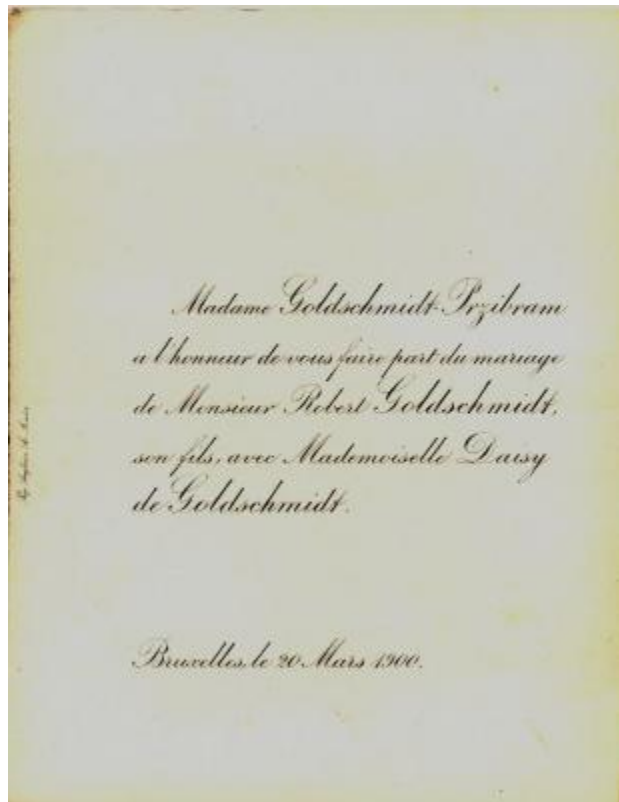 Madame Goldschmidt-Przibram
a l'honneur de vous faire part du mariage
de Monsieur Robert Goldschmidt,
son fils, avec Mademoiselle Daisy
de Goldschmidt.
Bruxelles, le 20 Mars 1900.